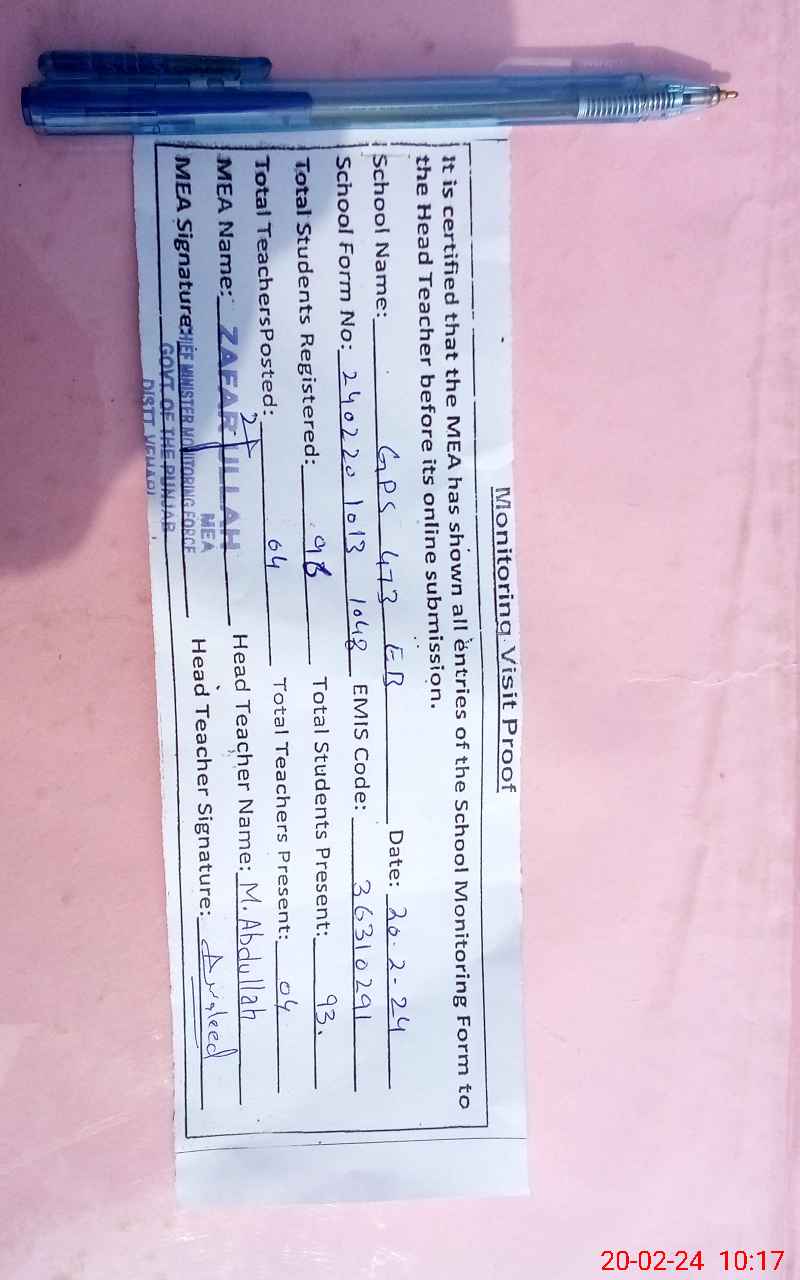 Monitoring Visit Proof
It is certified that the MEA has shown all entries of the School Monitoring Form to
the Head Teacher before its online submission.
School Name: GPS 473 EB Date: 20-2-24
School Form No: 240220 1013 1048 EMIS Code: 36310291
Total Students Registered: 98 Total Students Present: 93.
Total TeachersPosted: 04 Total Teachers Present: 04
MEA Name: ZAFAR ULLAH Head Teacher Name: M. Abdullah
MEA
MEA Signature: Head Teacher Signature:
CHIEF MINISTER MONITORING FORCE
GOVT OF THE PUNJAB
DISTT VEHARI
20-02-24 10:17